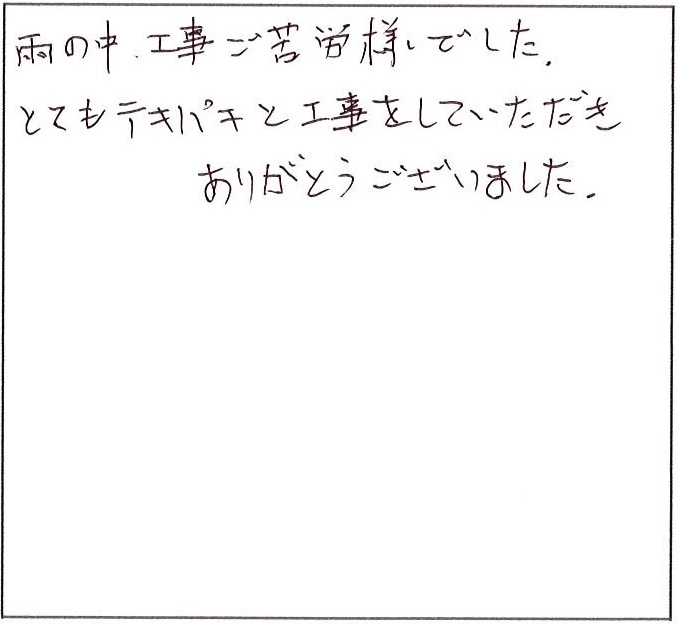 雨の中、工事ご苦労様でした。
とてもテキパキと工事をしていただき
ありがとうございました。